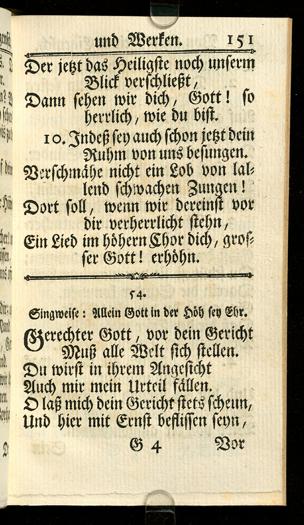 und Werken. 151
Der jetzt das Heiligste noch unserm
Blick verschließt,
Dann sehen wir dich, Gott! so
herrlich, wie du bist.
10. Indeß sey auch schon jetzt dein
Ruhm von uns besungen.
Verschmähe nicht ein Lob von lal-
lend schwachen Zungen!
Dort soll, wenn wir dereinst vor
dir verherrlicht stehn,
Ein Lied im höhern Chor dich, gros-
ser Gott! erhöhn.
54.
Singweise: Allein Gott in der Höh sey Ehr.
Gerechter Gott, vor dein Gericht
Muß alle Welt sich stellen.
Du wirst in ihrem Angesicht
Auch mir mein Urteil fällen.
O laß mich dein Gericht stets scheun,
Und hier mit Ernst beflissen seyn,
G 4 Vor